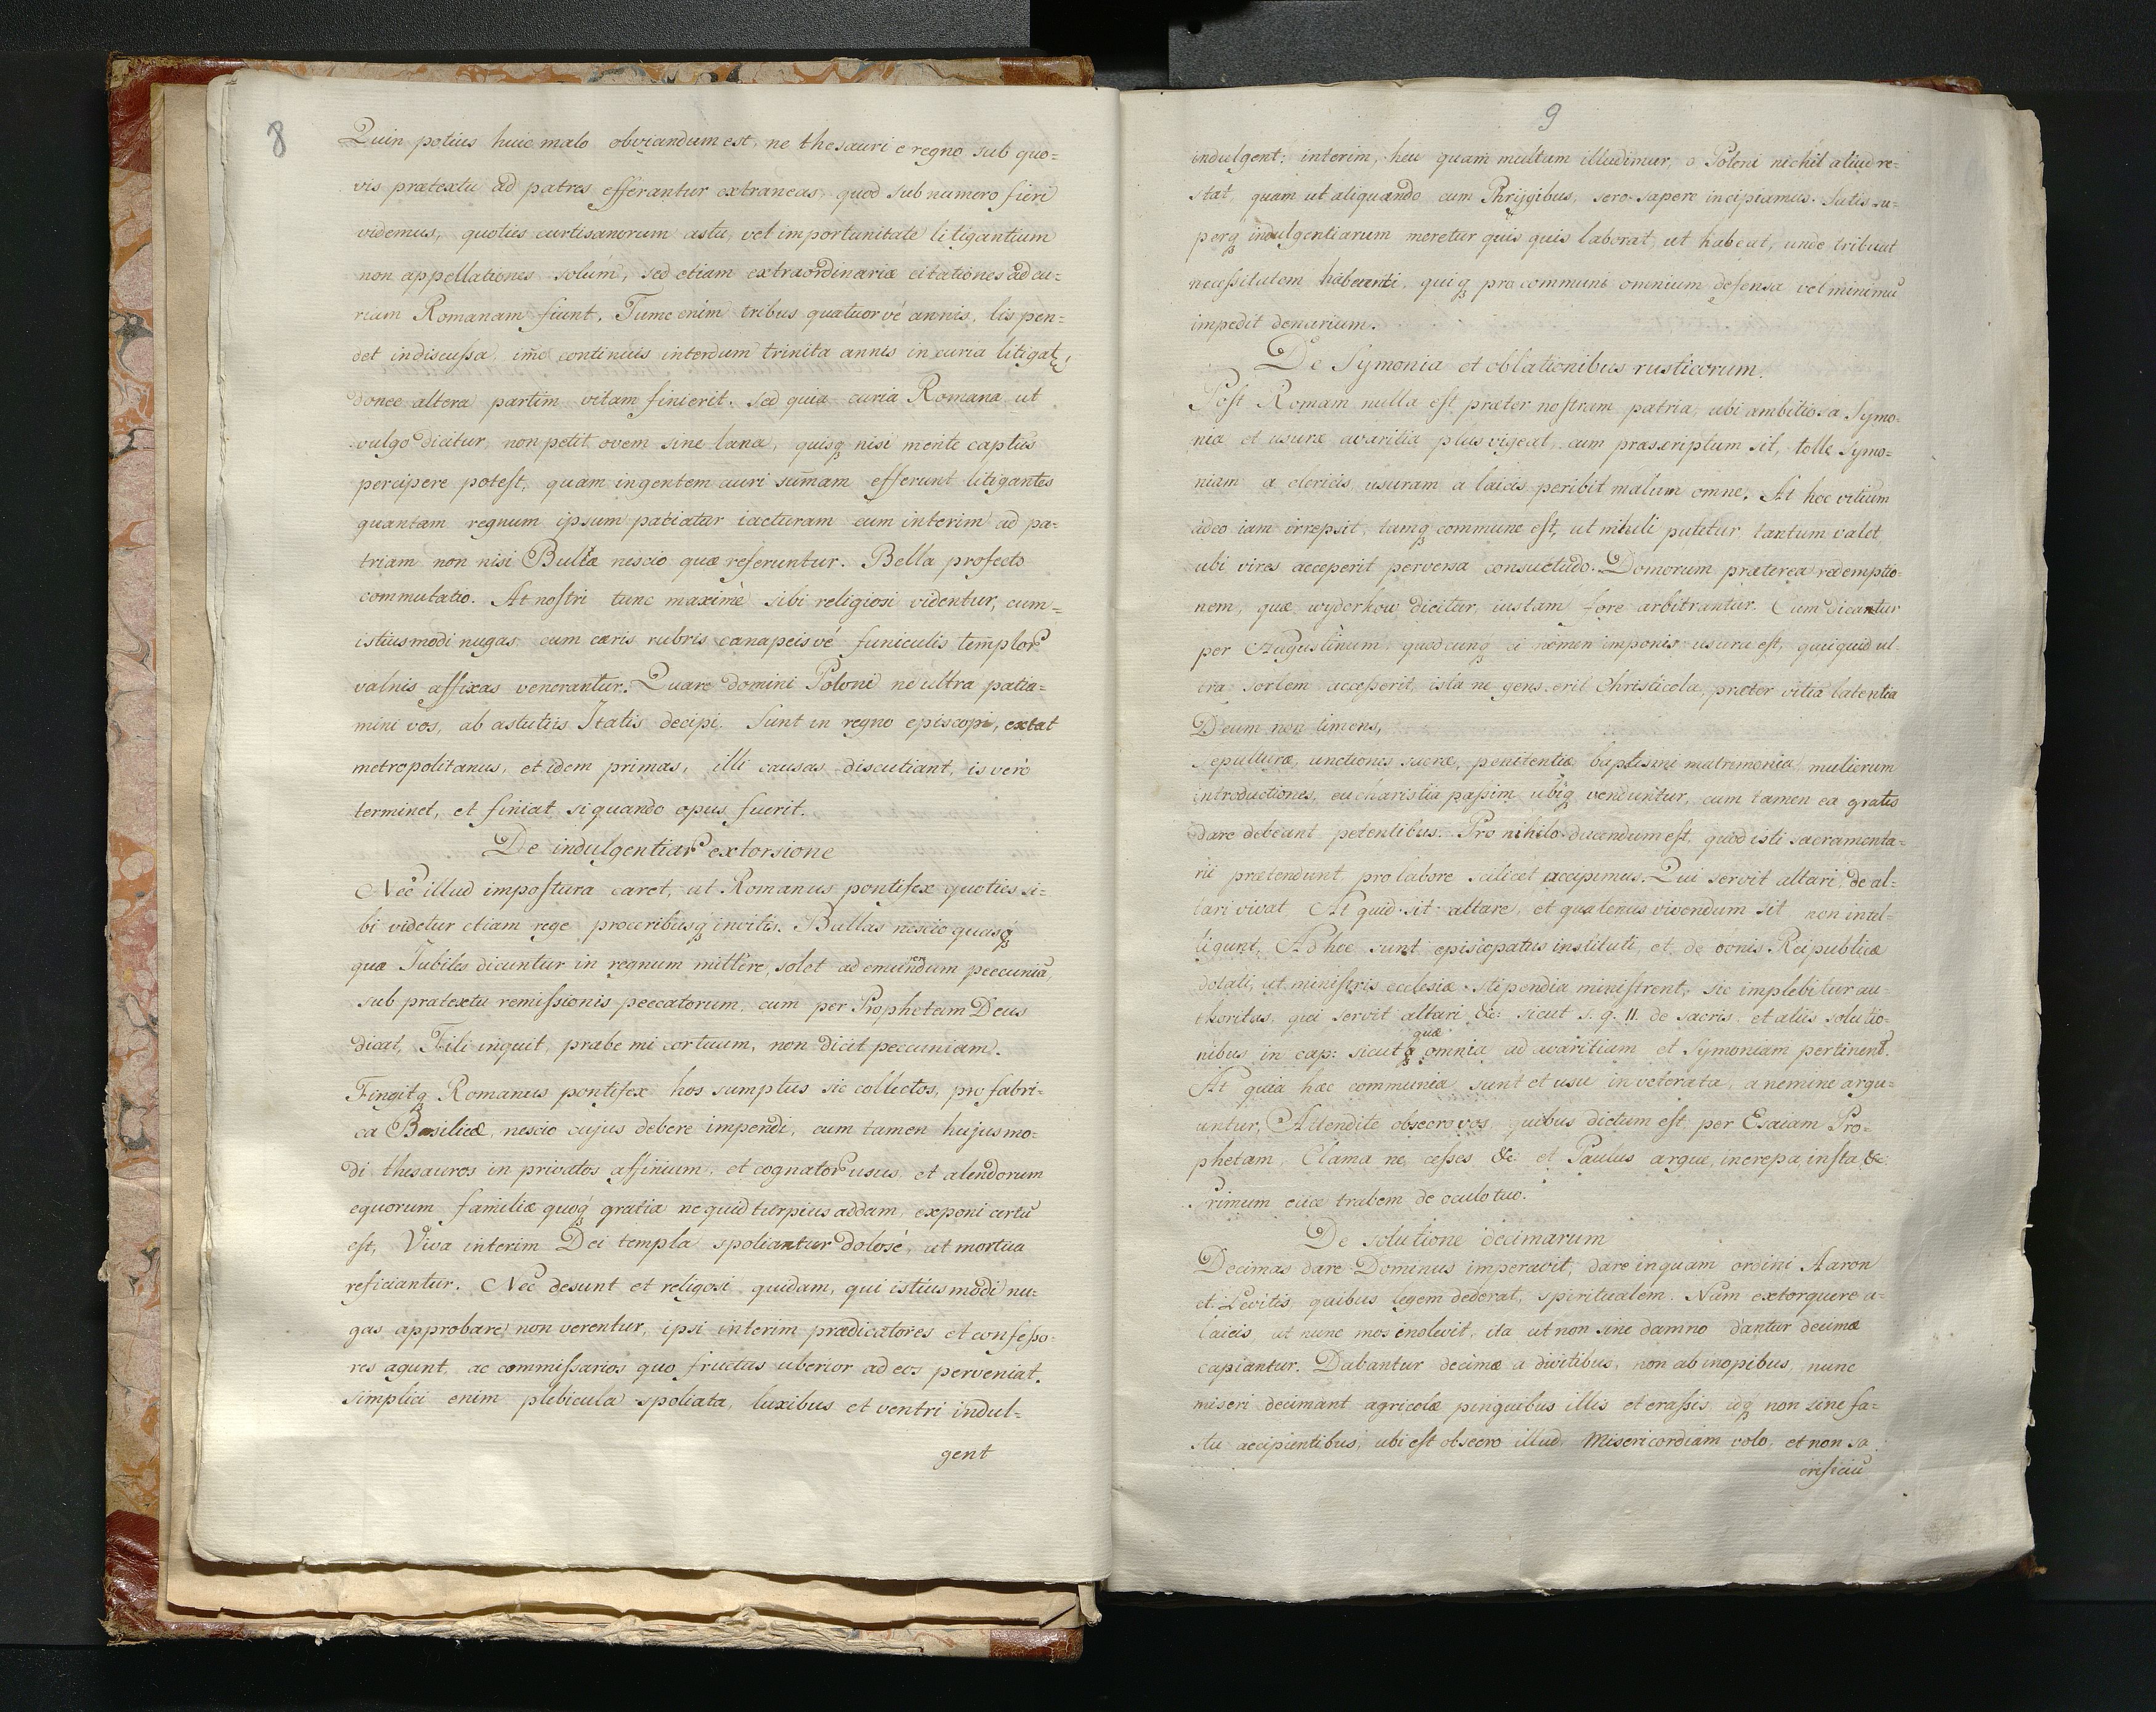 8
Quin potius huic malo obviandum est, ne thesauri e regno sub quo=
vis prætextu ad patres efferantur extraneas, quod sub numero fieri
videmus, quoties curtisanorum astu, vel importunitate litigantium
non appellationes solúm, sed etiam extraordinariæ citationes ad cu=
riam Romanam fiunt. Tunc enim tribus quatuorvé annis, lis pen=
det indiscussa, im̃o continuis interdum trinita annis in curia litigat
donec altera partim vitam finierit. Sed quia curia Romana, ut
vulgo dicitur, non petit ovem sine lana, quisq̃ nisi mente captus
percipere potest, quam ingentem auri sum̃am efferunt litigantes
quantam regnum ipsum patiatur iacturam cum interim ad pa=
triam non nisi Bulla nescio quæ referuntur. Bella profecto
commutatio. At nostri tunc maximè sibi religiosi videntur, cum=
istiusmodi nugas, cum ceris rubris canapeisvé funiculis templor
valnis affixas venerantur. Quare domini Poloni ne ultra patia=
mini vos, ab astutiis Italis decipi. Sunt in regno episcopi, extat
metropolitanus, et idem primas, illi causas discutiant, is verò
terminet, et finiat, si quando opus fuerit.
De indulgentiar extorsione
Nec illud impostura caret, ut Romanus pontifex quoties si=
bi videtur etiam rege proceribusq́ invitis. Bullas nescio quasq́
quæ Jubiles dicuntur in regnum mittere, solet ad emungendum peccuniã,
sub pratextu remissionis peccatorum, cum per Prophetam Deus
dicat, Fili inquit, præbe mi cor tuum, non dicit peccuniam.
Fingitq Romanus pontifex hos sumptus sic collectos, pro fabri=
ca Basilicæ, nescio cujus debere impendi, cum tamen hujusmo=
di thesauros in privatos affinium, et cognator usus, et alendorum
equorum familiæ quoq́ gratia ne quid turpius addam, exponi certũ
est, Viva interim Dei templa spoliantur dolosé, ut mortua
reficiantur. Nec desunt et religosi quidam, qui istiusmodi nu=
gas approbare non verentur, ipsi interim prædicatores et confesso=
res agunt, ac commissarios quo fructus uberior ad eos perveniat.
Simplici enim plebicula spoliata, luxibus et ventri indul=
gent
9
indulgent: interim, heu quam multum illudimur, o Poloni nichil aliud re=
stat, quam ut aliquando cum Phrijgibus, sero sapere incipiamus. Satis su=
perq indulgentiarum meretur quis quis laborat, ut habeat, unde tribuat
necessitatem habenti, quiq pro communi omnium defensa vel minimũ
impedit denarium.
De Symonia et oblationibus rusticorum.
Post Romam nulla est præter nostram patria, ubi ambitiosa Symo=
nia et usuræ avaritia plus vigeat, cum præscriptum sit, tolle Symo=
niam a clericis, usuram a laicis peribit malum omne. At hoc vitium
adeo iam irrepsit, tamq commune est, ut nihili putetur tantum valet
ubi vires acceperit perversa consuetudo. Domorum præterea redemptio=
nem, quæ wyderkow dicitur, iustam fore arbitrantur. Cum dicantur
per Augustinum, quodcunq ei nomen imponis usura est, quiquid ul=
tra sortem acceperit, ista ne gens erit Christicola, præter vitia latentia
Deum non timens,
Sepulturæ, unctiones sacræ, penitentiæ baptismi matrimonia, mulierum
introductiones, eucharistia passim ubiq venduntur, cum tamen ea gratis
dare debeant petentibus. Pro nihilo ducendum est, quod isti sacramenta=
rii prætendunt, pro labore scilicet accipimus. Qui servit altari, de al=
tari vivat. At quid sit altare, et quatenus vivendum sit non intel=
ligunt. Ad hoc sunt episcopatus instituti, et de bonis Reipublicæ
dotati, ut ministris ecclesiæ stipendia ministrent, sic implebitur au=
thoritas, qui servit altari &c: sicut s. q. II. de sacris et aliis solutio=
nibus in cap: sicut q quæ omnia ad avaritiam et Symoniam pertinent.
At quia hæc communia sunt et usu inveterata, a nemine argu=
untur, Attendite obsecro vos, quibus dictum est per Esaiam Pro=
phetam, Clama ne, cesses &c: et Paulus argue, increpa, insta &c:
Primum eiice trabem de oculo tuo.
De solutione decimarum
Decimas dare Dominus imperavit, dare inquam ordini Aaron
et Levitis, quibus legem dederat, spiritualem. Nam extorquere a=
laicis, ut nunc mos inolevit, ita ut non sine damno dantur decimæ
capiantur. Dabantur decimæ a divitibus, non ab inopibus, nunc
miseri decimant agricolæ pinguibus illis et crassis, idq non sine fa=
stu accipientibus, ubi est obsecro illud, Misericordiam volo, et non sa
crificiũ